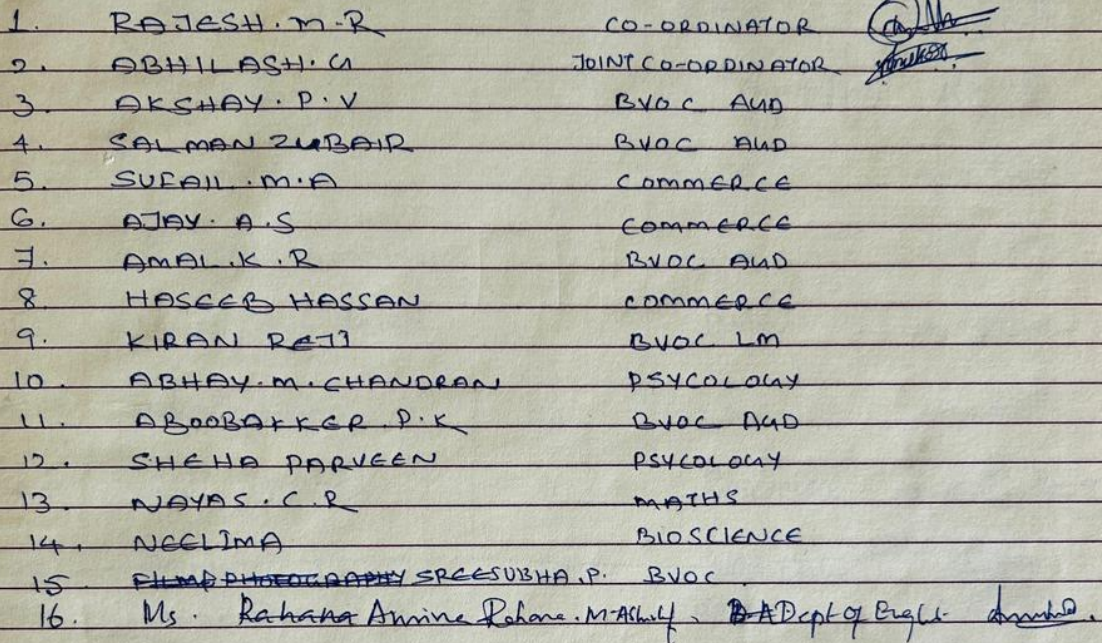 1. RAJESH. M. R CO-ORDINATOR
2. ABHILASH. G JOINT CO-ORDINATOR
3. AKSHAY. P. V BVOC AUD
4. SALMAN ZUBAIR BVOC AUD
5. SUFAIL. M. A COMMERCE
6. AJAY. A. S COMMERCE
7. AMAL. K. R BVOC AUD
8. HASEEB HASSAN COMMERCE
9. KIRAN REJI BVOC LM
10. ABHAY. M. CHANDRAN PSYCOLOGY
11. ABOOBAKKER. P. K BVOC AUD
12. SHEHA PARVEEN PSYCOLOGY
13. NAYAS. C. R MATHS
14. NEELIMA BIOSCIENCE
15. SREESUBHA. P. BVOC
16. Ms. Rahana Dept of